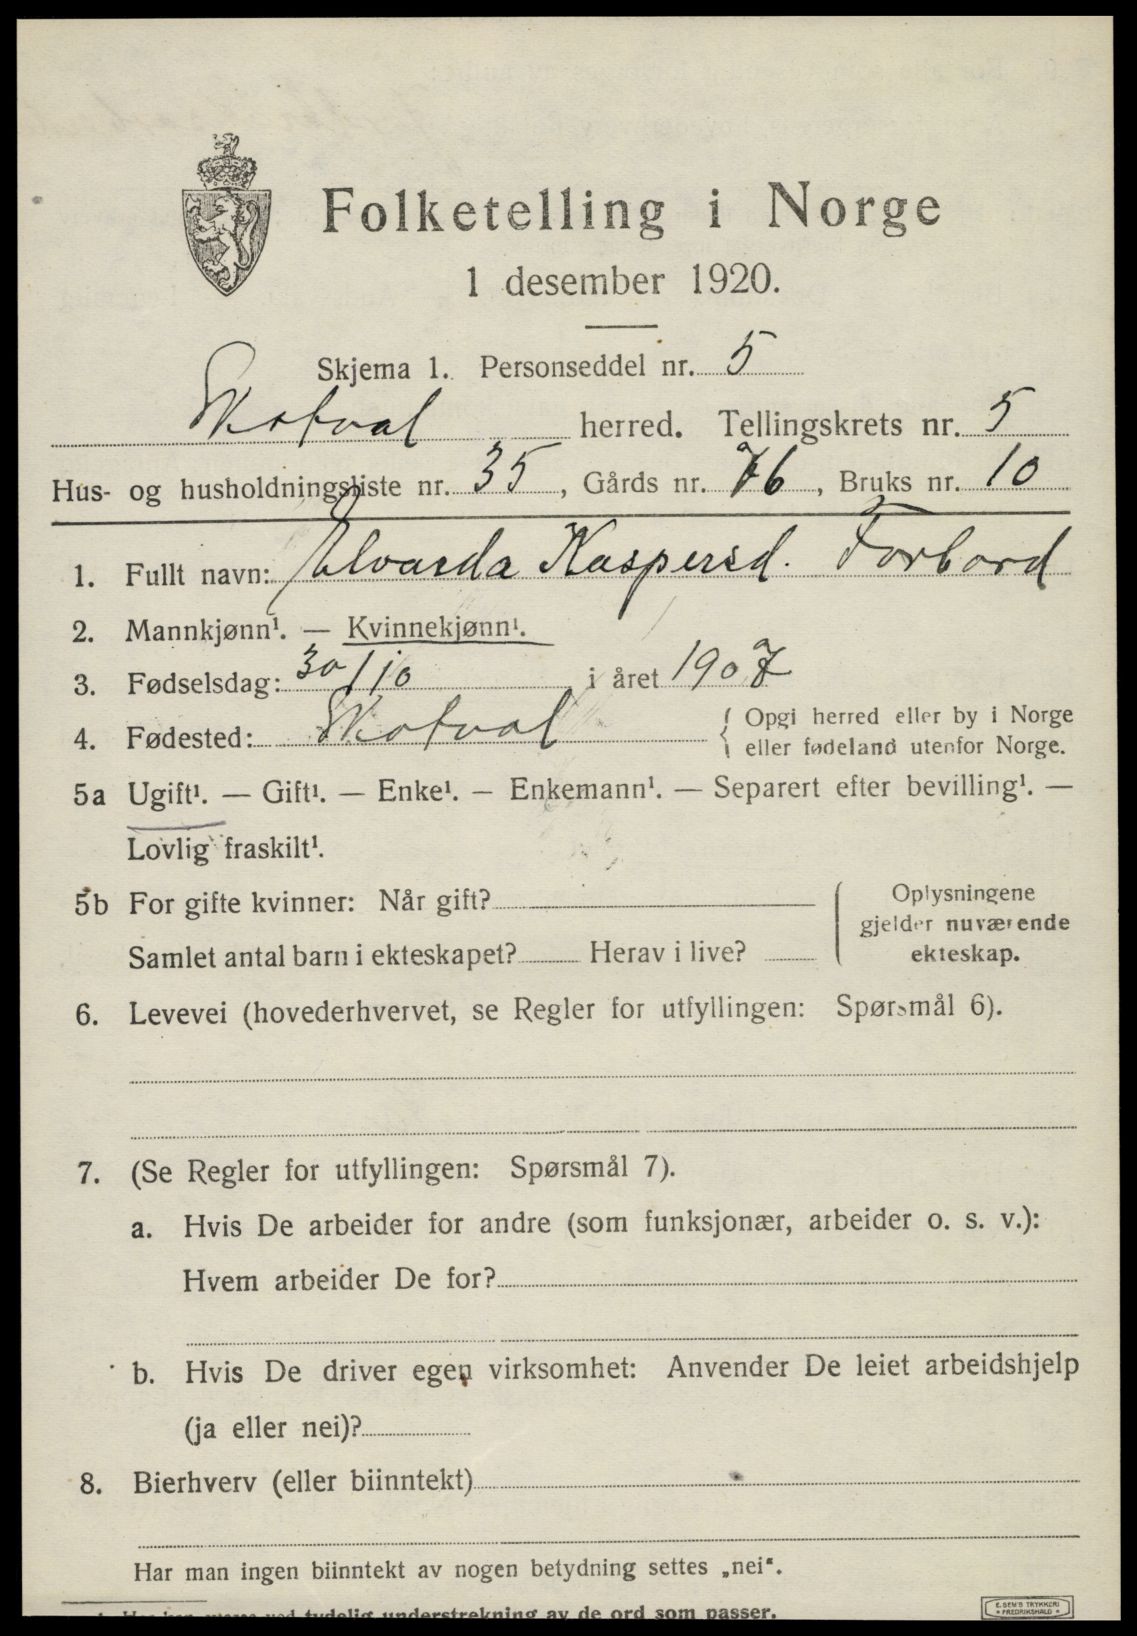 Folketelling i Norge
1 desember 1920.
Skjema 1. Personseddel nr. 5
Skatval herred. Tellingskrets nr. 5
Hus- og husholdningsliste nr. 35, Gårds nr. 76, Bruks nr. 10
1. Fullt navn: Elvarda Kaspersd. Forbord
2. Mannkjønn¹. — Kvinnekjønn¹.
3. Fødselsdag: 30/10 i året 1907
4. Fødested: Skatval { Opgi herred eller by i Norge
eller fødeland utenfor Norge.
5a Ugift¹. — Gift¹. — Enke¹. — Enkemann¹. — Separert efter bevilling¹. —
Lovlig fraskilt¹.
5b For gifte kvinner: Når gift? { Oplysningene
gjelder nuværende
Samlet antal barn i ekteskapet? Herav i live? ekteskap.
6. Levevei (hovederhvervet, se Regler for utfyllingen: Spørsmål 6).
7. (Se Regler for utfyllingen: Spørsmål 7).
a. Hvis De arbeider for andre (som funksjonær, arbeider o. s. v.):
Hvem arbeider De for?
b. Hvis De driver egen virksomhet: Anvender De leiet arbeidshjelp
(ja eller nei)?
8. Bierhverv (eller biinntekt)
Har man ingen biinntekt av nogen betydning settes „nei“.
tydelig understrekning av de ord som passer.
E. SEM'S TRYKKERI
* FREDRIKSHALD *